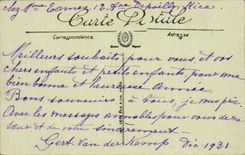 chez Mme Eames, 12. Rue Depoilly, Nice.
Carte Postale
Correspondance
Adresse
Meilleurs souhaits pour vous et vos
chers enfants et petits enfants pour une
bien bonne et heureuse Année
Bons souvenirs à tous, je vous prie
Avec les messages aimables pour vous de ma
sœur et de votre sincèrement
Gert. Van der Kemp Dec 1921